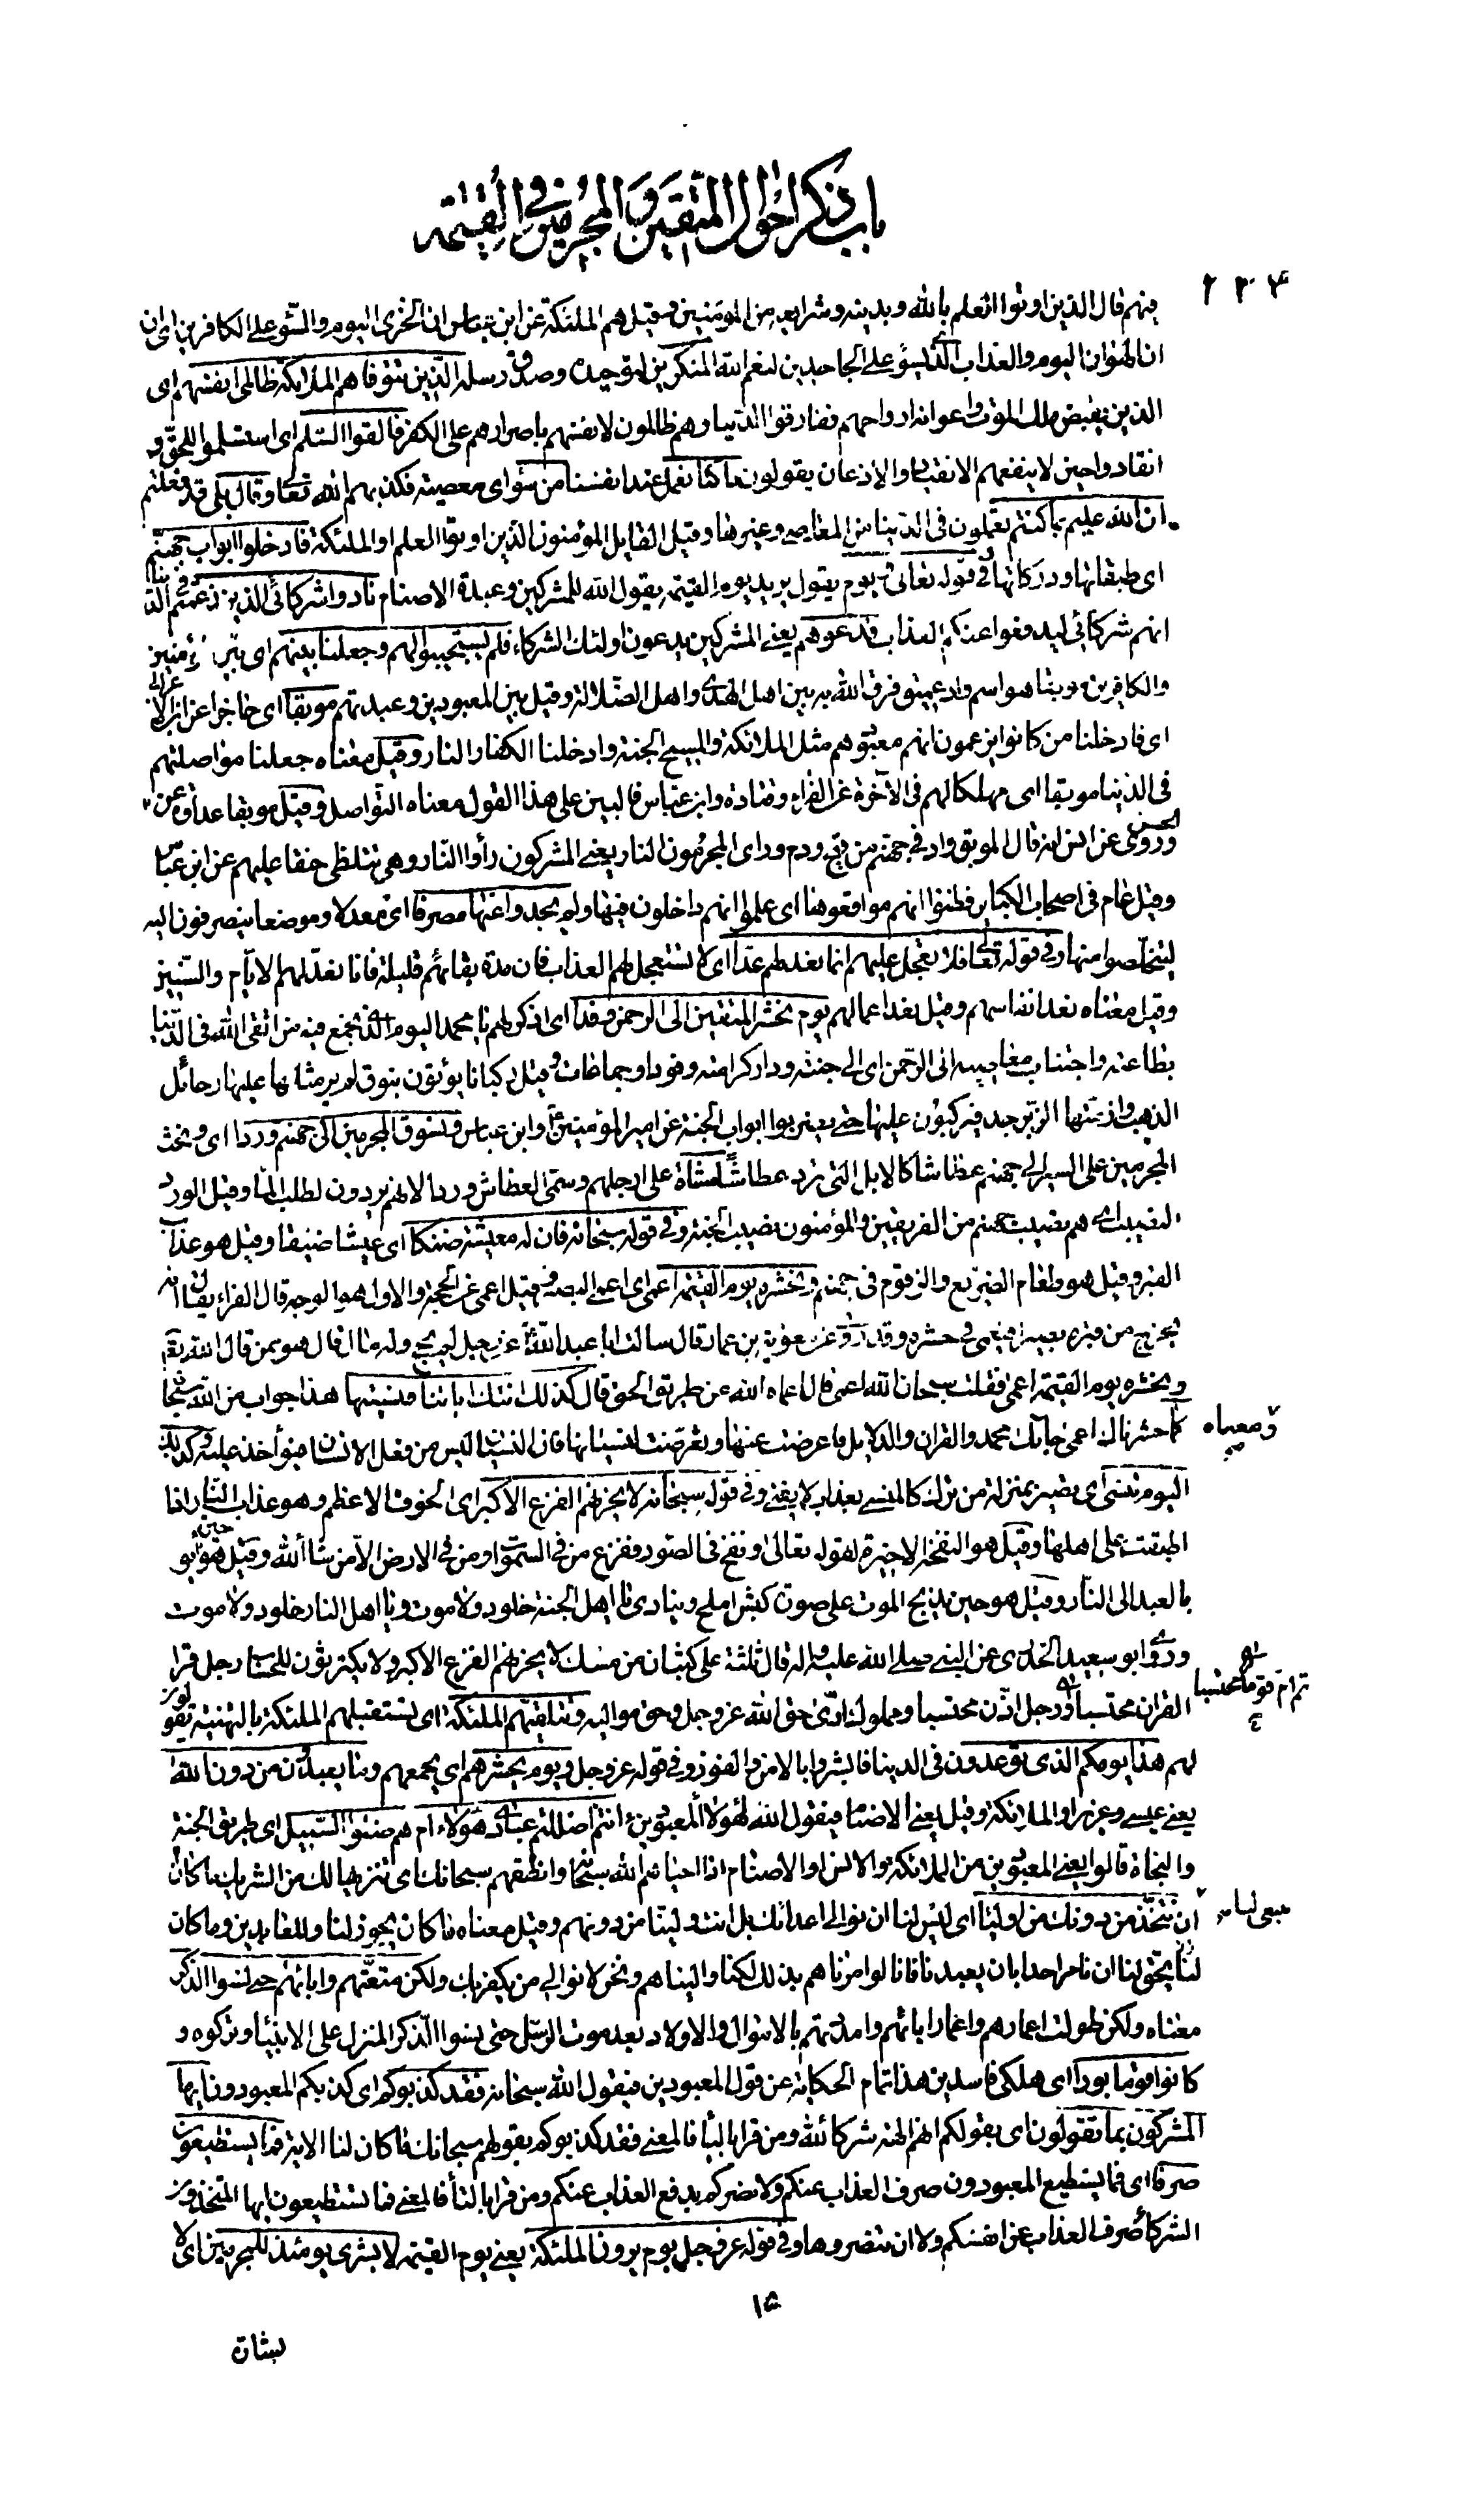 باب ذكر احوال المتقين و المجرمين في القيمة
٢٣٤
منهم قال الذين اوتوا العلم بالله وبدينه وشرايعه من المؤمنين وقيل هم الملئكة عن ابن عباس ان الخزى اليوم والسوء على الكافرين اى ان
ان الهوان اليوم والعذاب الذى يسوء على الجاحدين لنعم الله المنكرين لتوحيده وصدق رسله الذين تتوفاهم الملائكة ظالمى انفسهم اى
الذين يقبض ملك الموت واعوانه ارواحهم ففارقوا الدنيا وهم ظالمون لانفسهم باصرارهم على الكفر فالقوا السلم اى استسلموا للحق و
انقادوا حين لا ينفعهم الانقياد والاذعان يقولون ما كنا نعمل عند انفسنا من سوء اى معصية فكذبهم الله تعالى وقال بلى قد فعلتم
ان الله عليم بما كنتم تعملون فى الدنيا من المعاصى وغيرها وقيل القايل المؤمنون الذين اوتوا العلم او الملئكة فادخلوا ابواب جهنم
اى طبقاتها ودركاتها وفى قوله تعالى ويوم يقول يريد يوم القيمة يقول الله للمشركين وعبدة الاصنام نادوا شركائى الذين زعمتم فى الدنيا
انهم شركائى ليدفعوا عنكم العذاب فدعوهم يعنى المشركين يدعون اولئك الشركاء فلم يستجيبوا لهم وجعلنا بينهم اى بين المؤمنين
والكافرين موبقا هو اسم واد عميق فرق الله به بين اهل الهدى واهل الضلالة وقيل بين المعبودين وعبدتهم موبقا اى حاجزا عن ابن الاعرابى
اى فادخلنا من كانوا يزعمون انهم معبودهم مثل الملائكة والمسيح الجنة وادخلنا الكفار النار وقيل معناه جعلنا مواصلتهم
فى الدنيا موبقا اى مهلكا لهم فى الآخرة عن الفراء وقتادة وابن عباس فالبين على هذا القول معناه التواصل وقيل موبقا عداوة عن
الحسن
وروى عن انس انه قال الموبق واد فى جهنم من قيح ودم وراى المجرمون النار يعنى المشركون رأوا النار وهى تتلظى حنقا عليهم عن ابن عباس
وقيل عام فى اصحاب الكباير فظنوا انهم مواقعوها اى علموا انهم داخلون فيها ولم يجدوا عنها مصرفا اى معدلا وموضعا ينصرفون اليه
ليتخلصوا منها وفى قوله تعالى فلا تعجل عليهم انما نعد لهم عدا اى لا تستعجل لهم العذاب فان مدة بقائهم قليلة فانا نعد لهم الايام والسنين
وقيل معناه نعد انفاسهم وقيل نعد اعمالهم يوم نحشر المتقين الى الرحمن وفدا اى اذكر لهم يا محمد اليوم الذى نجمع فيه من اتقى الله فى الدنيا
بطاعته واجتناب معاصيه الى الرحمن اى الى جنته ودار كرامته وفودا وجماعات وقيل ركبانا يؤتون بنوق لم ير مثلها عليها رحائل
الذهب وازمتها الزبرجد فيركبون عليها حتى يضربوا ابواب الجنة عن امير المؤمنين ع وابن عباس ونسوق المجرمين الى جهنم وردا اى ونحث
المجرمين على السير الى جهنم عطاشا كالابل التى ترد عطاشا مشاة على ارجلهم وسمى العطاش وردا لانهم يردون لطلب الماء وقيل الورد
النصيب اى هم نصيب جهنم من الفريقين والمؤمنون نصيب الجنة وفى قوله سبحانه فان له معيشة ضنكا اى عيشا ضيقا وقيل هو عذاب
القبر وقيل هو طعام الضريع والزقوم فى جهنم ونحشره يوم القيمة اعمى اى اعمى البصر وقيل اعمى عن الحجة والاول هو الوجه قال الفراء يقال انه
يخرج من قبره بصيرا فيعمى فى حشره وقد روى عن معوية بن عمار قال سالت ابا عبد الله ع عن رجل لم يحج وله مال قال هو ممن قال الله تعالى
ونحشره يوم القيمة اعمى فقلت سبحان الله اعمى قال اعماه الله عن طريق الحق قال كذلك اتتك اياتنا فنسيتها هذا جواب من الله سبحانه
ومعناه
كما حشرناك اعمى جاءك محمد والقران والدلايل فاعرضت عنها وتعرضت لنسيانها فان النسيان ليس من فعل الانسان فيؤاخذ عليه وكذلك
اليوم تنسى اى تصير بمنزلة من ترك كالمنسى بعذاب لا يفنى وفى قوله سبحانه لا يحزنهم الفزع الاكبر اى الخوف الاعظم وهو عذاب النار اذا
اطبقت على اهلها وقيل هو النفخة الاخيرة لقوله تعالى ونفخ فى الصور ففزع من فى السموات ومن فى الارض الا من شاء الله وقيل هو حين يؤمر
بالعبد الى النار وقيل هو حين يذبح الموت على صوت كبش املح وينادى يا اهل الجنة خلود ولا موت ويا اهل النار خلود ولا موت
وروى ابو سعيد الخدرى عن النبى صلى الله عليه واله قال ثلثة على كثبان من مسك لا يحزنهم الفزع الاكبر ولا يكترثون للحساب رجل قرا
القران محتسبا ورجل اذن محتسبا ومملوك ادى حق الله عز وجل وحق مواليه وتتلقيهم الملئكة اى تستقبلهم الملئكة بالتهنية يقولون
ثم ام قوما محتسبا
لهم هذا يومكم الذى توعدون فى الدنيا فابشروا بالامن والفوز وفى قوله عز وجل ويوم يحشرهم اى يجمعهم وما يعبدون من دون الله
يعنى عيسى وعزير او الملائكة وقيل يعنى الاصنام فيقول الله لهؤلاء المعبودين ءانتم اضللتم عبادى هؤلاء ام هم ضلوا السبيل اى طريق الجنة
والنجاة قالوا يعنى المعبودين من الملائكة والانس او الاصنام اذا احياهم الله سبحانه وانطقهم سبحانك اى تنزيها لك من الشريك ما كان
ينبغى لنا
ان نتخذ من دونك من اولياء اى ليس لنا ان نوالى اعدائك بل انت ولينا من دونهم وقيل معناه ما كان يجوز لنا وللعابدين وما كان
يحق لنا ان نامر احدا بان يعبدنا فانا لو امرناهم بذلك لكنا واليناهم ونحن لا نوالى من يكفر بك ولكن متعتهم وابائهم حتى نسوا الذكر
معناه ولكن طولت اعمارهم واعمار ابائهم وامددتهم بالاموال والاولاد بعد موت الرسل حتى نسوا الذكر المنزل على الانبياء وتركوه و
كانوا قوما بورا اى هلكى فاسدين هذا تمام الحكاية عن قول المعبودين فيقول الله سبحانه فقد كذبوكم اى كذبكم المعبودون ايها
المشركون بما تقولون اى بقولكم انهم الهة شركاء لله ومن قرا بالياء فالمعنى فقد كذبوكم بقولهم سبحانك ما كان لنا الاية فما يستطيعون
صرفا اى فما يستطيع المعبودون صرف العذاب عنكم ولا نصركم بدفع العذاب عنكم ومن قرا بالتاء فالمعنى فما تستطيعون ايها المتخذون
الشركاء صرف العذاب عن انفسكم ولا ان تنصروها وفى قوله عز وجل يوم يرون الملئكة يعنى يوم القيمة لا بشرى يومئذ للمجرمين اى لا
١٥
بشارة